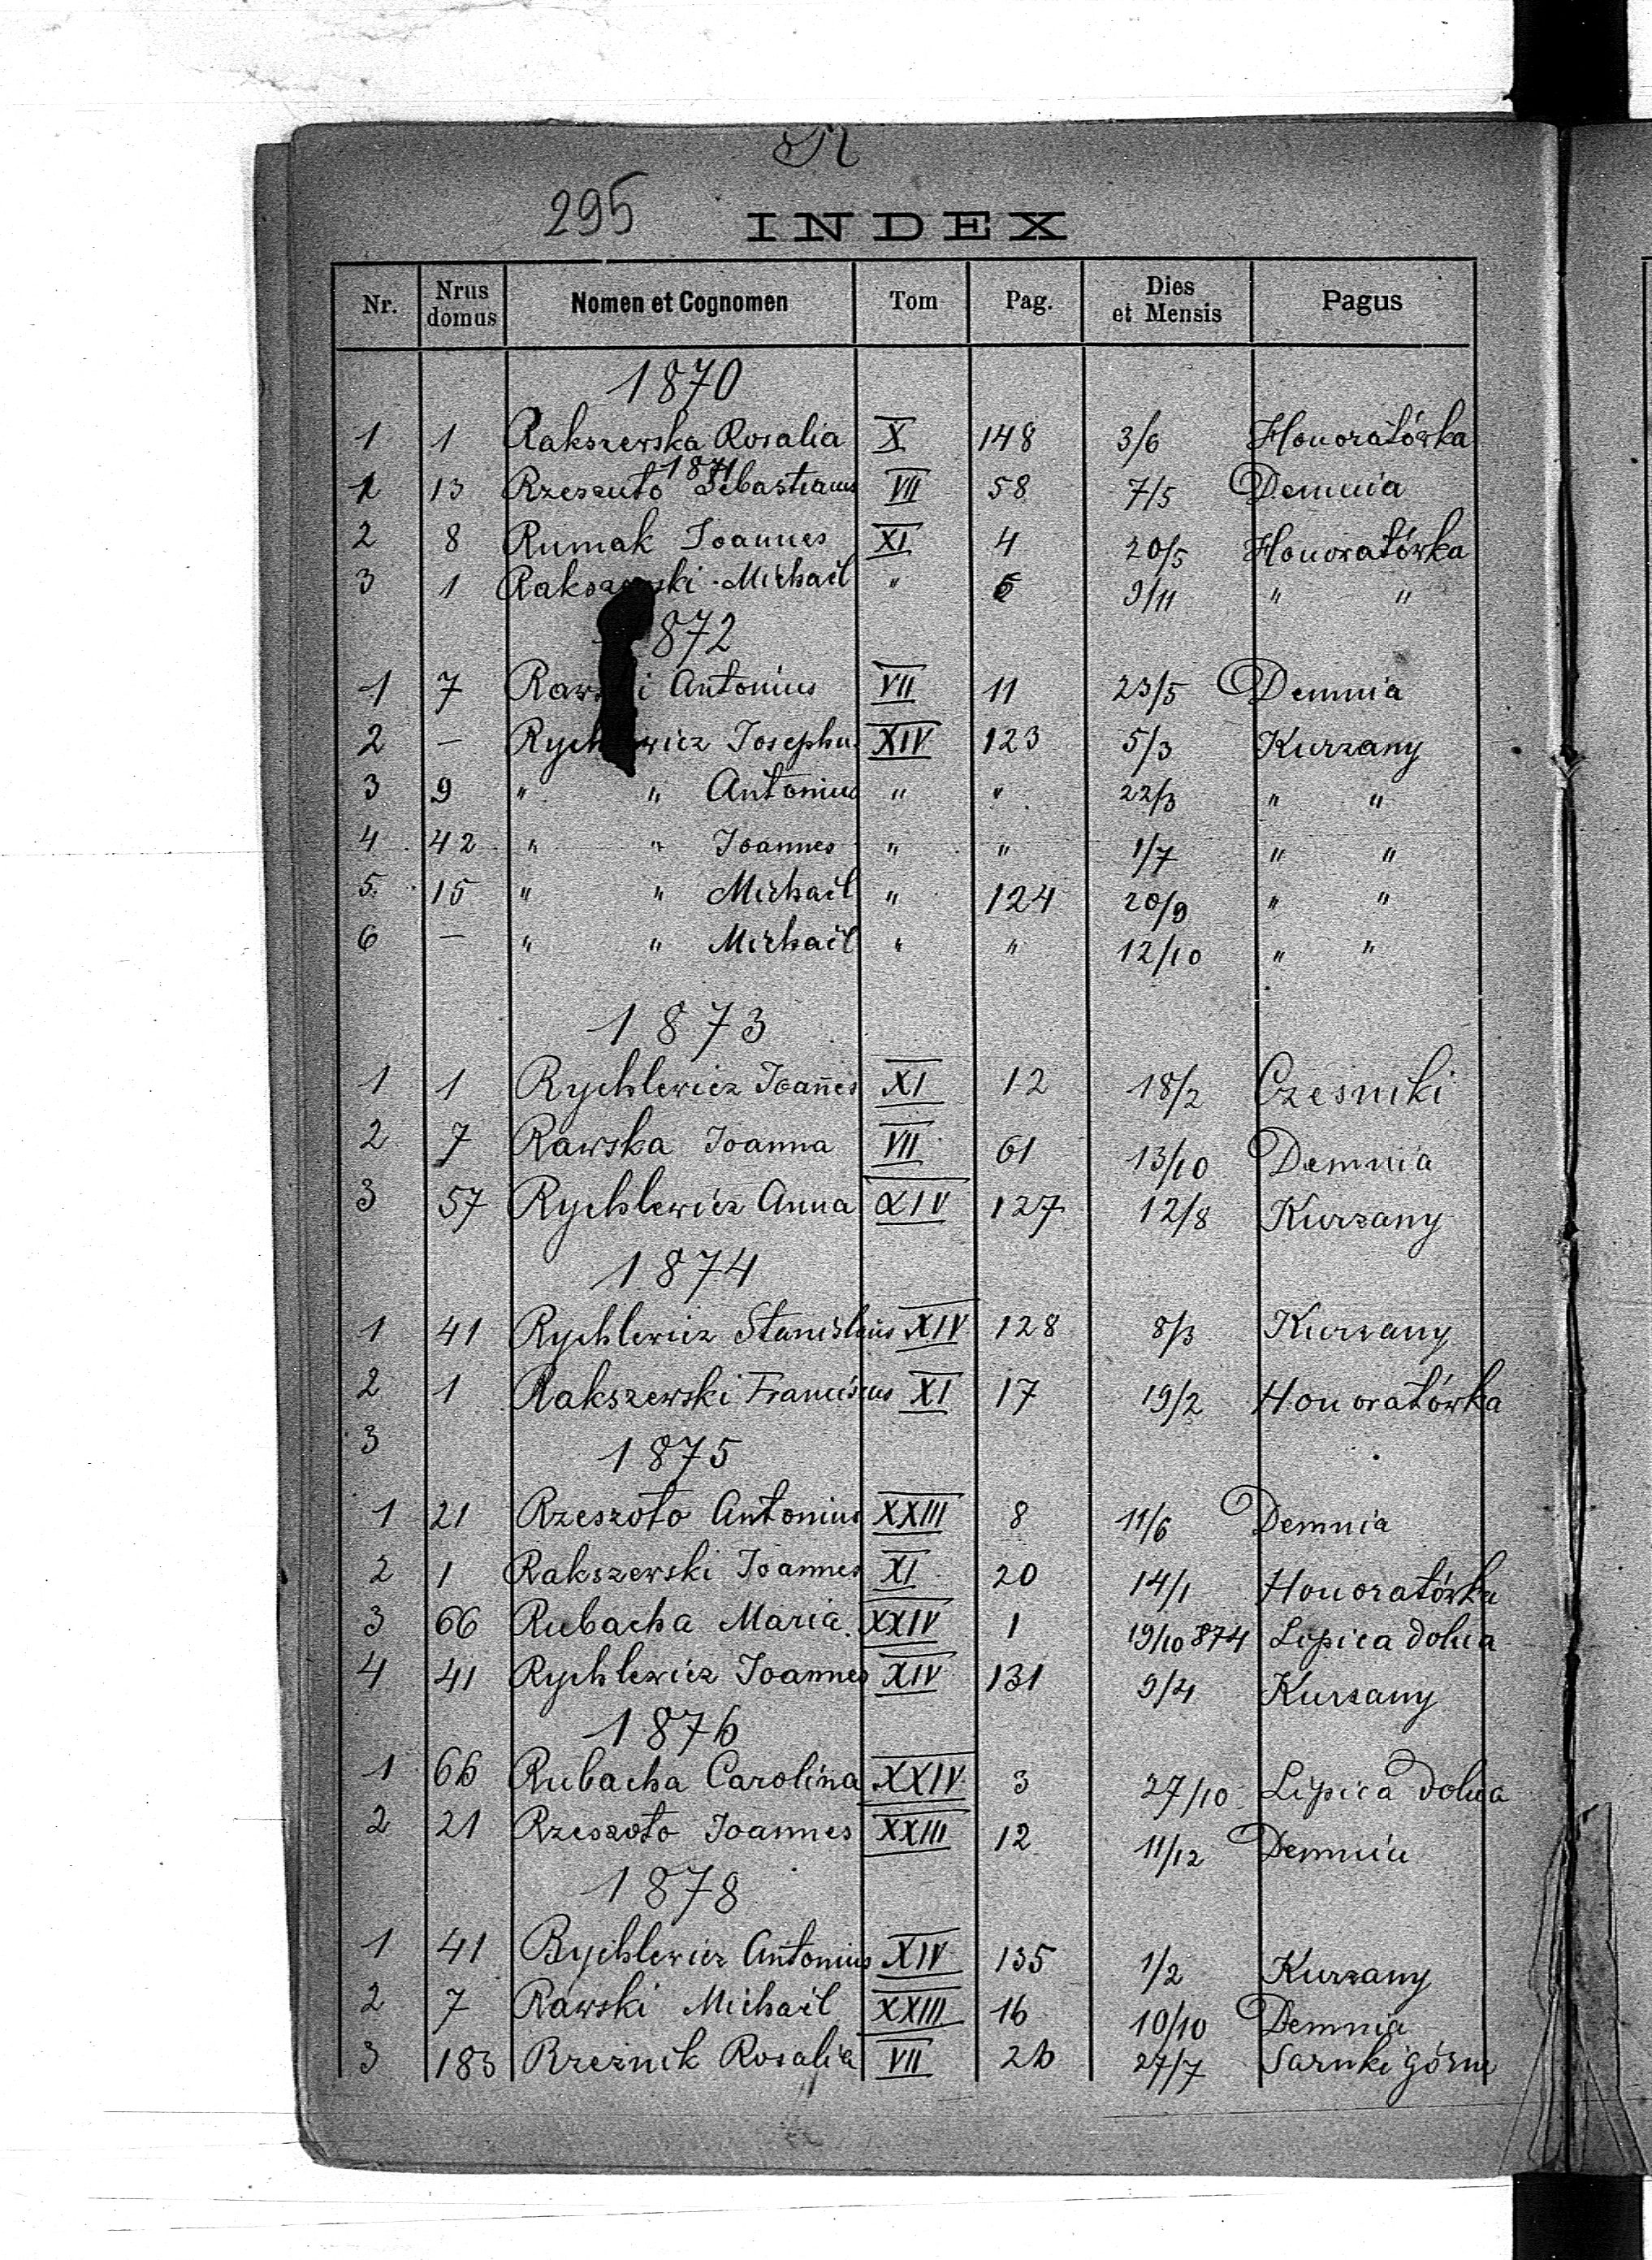 R
295
INDEX
Nr. Nrus domus Nomen et Cognomen Tom Pag. Dies et Mensis Pagus
1870
1 1 Rakszewska Rosalia X 148 3/6 Honoratówka
1871
1 13 Rzeszuto Sebastianus VII 58 7/5 Demnia
2 8 Rumak Joannes XI 4 20/5 Honoratówka
3 1 Michaël " 9/11 " "
872
1 7 Antonius VII 11 23/5 Demnia
2 — Josephus XIV 123 5/3 Kurzany
3 9 " " Antonius " " 22/3 " "
4 42 " " Joannes " " 1/7 " "
5. 15 " " Michaël " 124 20/9 " "
6 — " " Michaël " " 12/10 " "
1873
1 1 Rychlewicz Joañes XI 12 18/2 Czesniki
2 7 Rawska Joanna VII 61 13/10 Demnia
3 57 Rychlewicz Anna XIV 127 12/8 Kurzany
1874
1 41 Rychlewicz Stanislaus XIV 128 8/3 Kurzany
2 1 Rakszewski Franciscus XI 17 19/2 Honoratówka
3
1875
1 21 Rzeszoto Antonius XXIII 8 11/6 Demnia
2 1 Rakszewski Joannes XI 20 14/1 Honoratówka
3 66 Rubacha Maria XXIV 1 19/10 874 Lipica dolna
4 41 Rychlewicz Joannes XIV 131 9/4 Kurzany
1876
1 66 Rubacha Carolina XXIV 3 27/10 Lipica dolna
2 21 Rzeszoto Joannes XXIII 12 11/12 Demnia
1878
1 41 Rychlewicz Antonius XIV 135 1/2 Kurzany
2 7 Rawski Michaël XXIII 16 10/10 Demnia
3 183 Rosalia VII 26 27/7 Sarnki górne